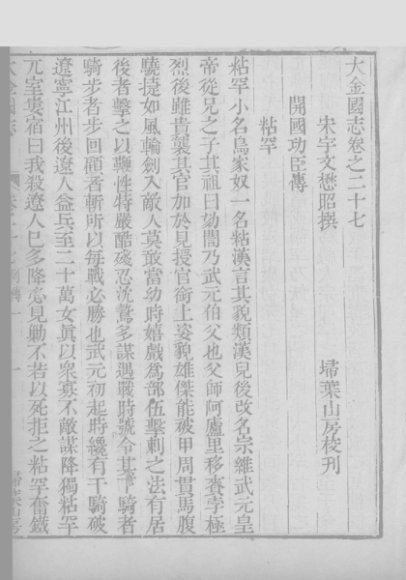 大金國志卷之二十七
宋宇文懋昭撰 埽葉山房校刊
開國功臣傳
粘罕
粘罕小名鳥家奴一名粘漢言其貌類漢兒後改名宗維武元皇
帝從兄之子其祖曰劾閭乃武元伯父也父師阿盧里移賚孛極
烈後雖貴襲其官加於見授官銜上姿貌雄傑能被甲周貫馬腹
驍捷如風輪劍入敵人莫敢當幼時嬉戲為部伍擊刺之法有居
後者擊之以鞭性特嚴酷殘忍沈鷙多謀遇戰時號令其下騎者
騎步者步回顧者斬所以每戰必勝也武元初起時纔有千騎破
遼寧江州後遼人益兵至二十萬女眞以衆寡不敵謀降獨粘罕
兀室婁宿曰我殺遼人巳多降必見勦不若以死拒之粘罕奮鐵